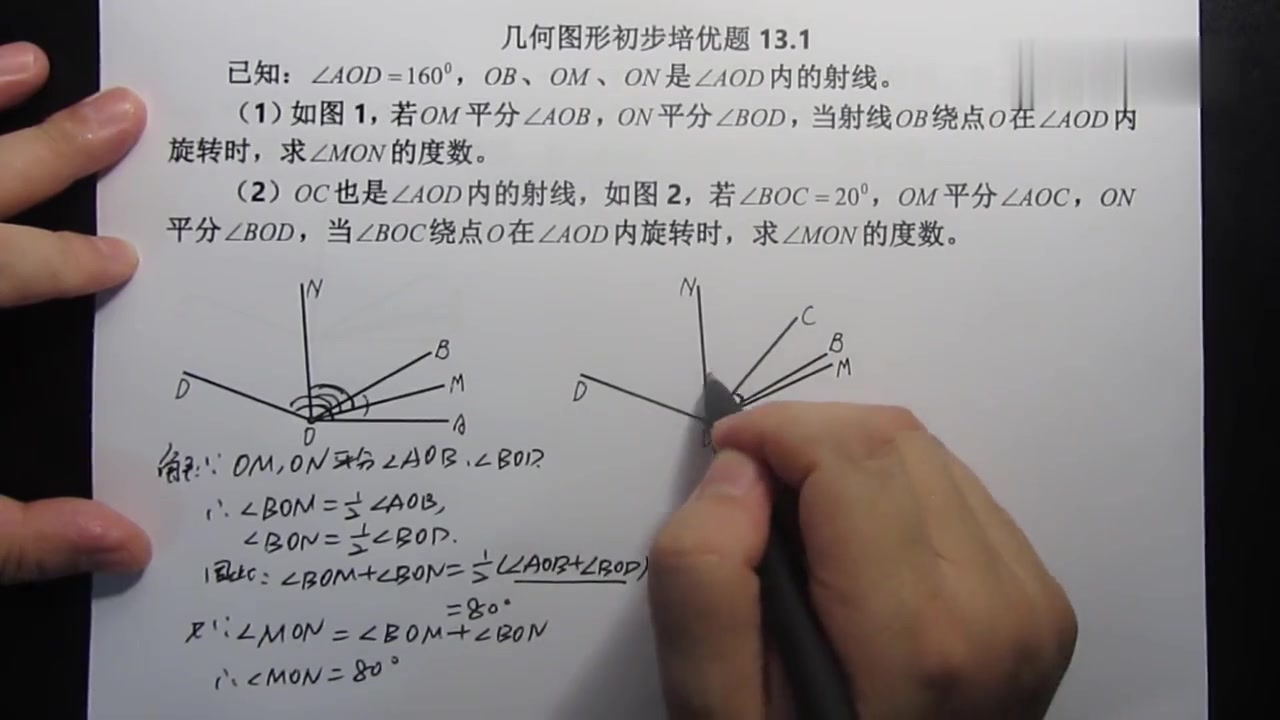 几何图形初步培优题 13.1
已知：∠AOD=160⁰，OB、OM、ON是∠AOD内的射线。
（1）如图 1，若OM平分∠AOB，ON平分∠BOD，当射线OB绕点O在∠AOD内
旋转时，求∠MON的度数。
（2）OC也是∠AOD内的射线，如图 2，若∠BOC=20⁰，OM平分∠AOC，ON
平分∠BOD，当∠BOC绕点O在∠AOD内旋转时，求∠MON的度数。
N
B
M
D
O
A
N
C
B
M
D
解：∵ OM，ON平分∠AOB、∠BOD.
∴∠BOM=½∠AOB,
∠BON=½∠BOD.
因此：∠BOM+∠BON=½(∠AOB+∠BOD)
=80°
又∵∠MON=∠BOM+∠BON
∴∠MON=80°